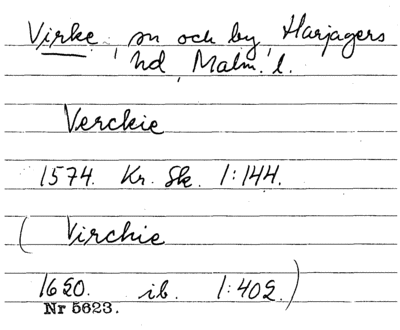 Virke, sn och by, Harjagers
hd, Malm. l.
Verckie
1574. Kr. Sk. 1:144.
( Virchie
1620. ib. 1:402. )
Nr 5623.